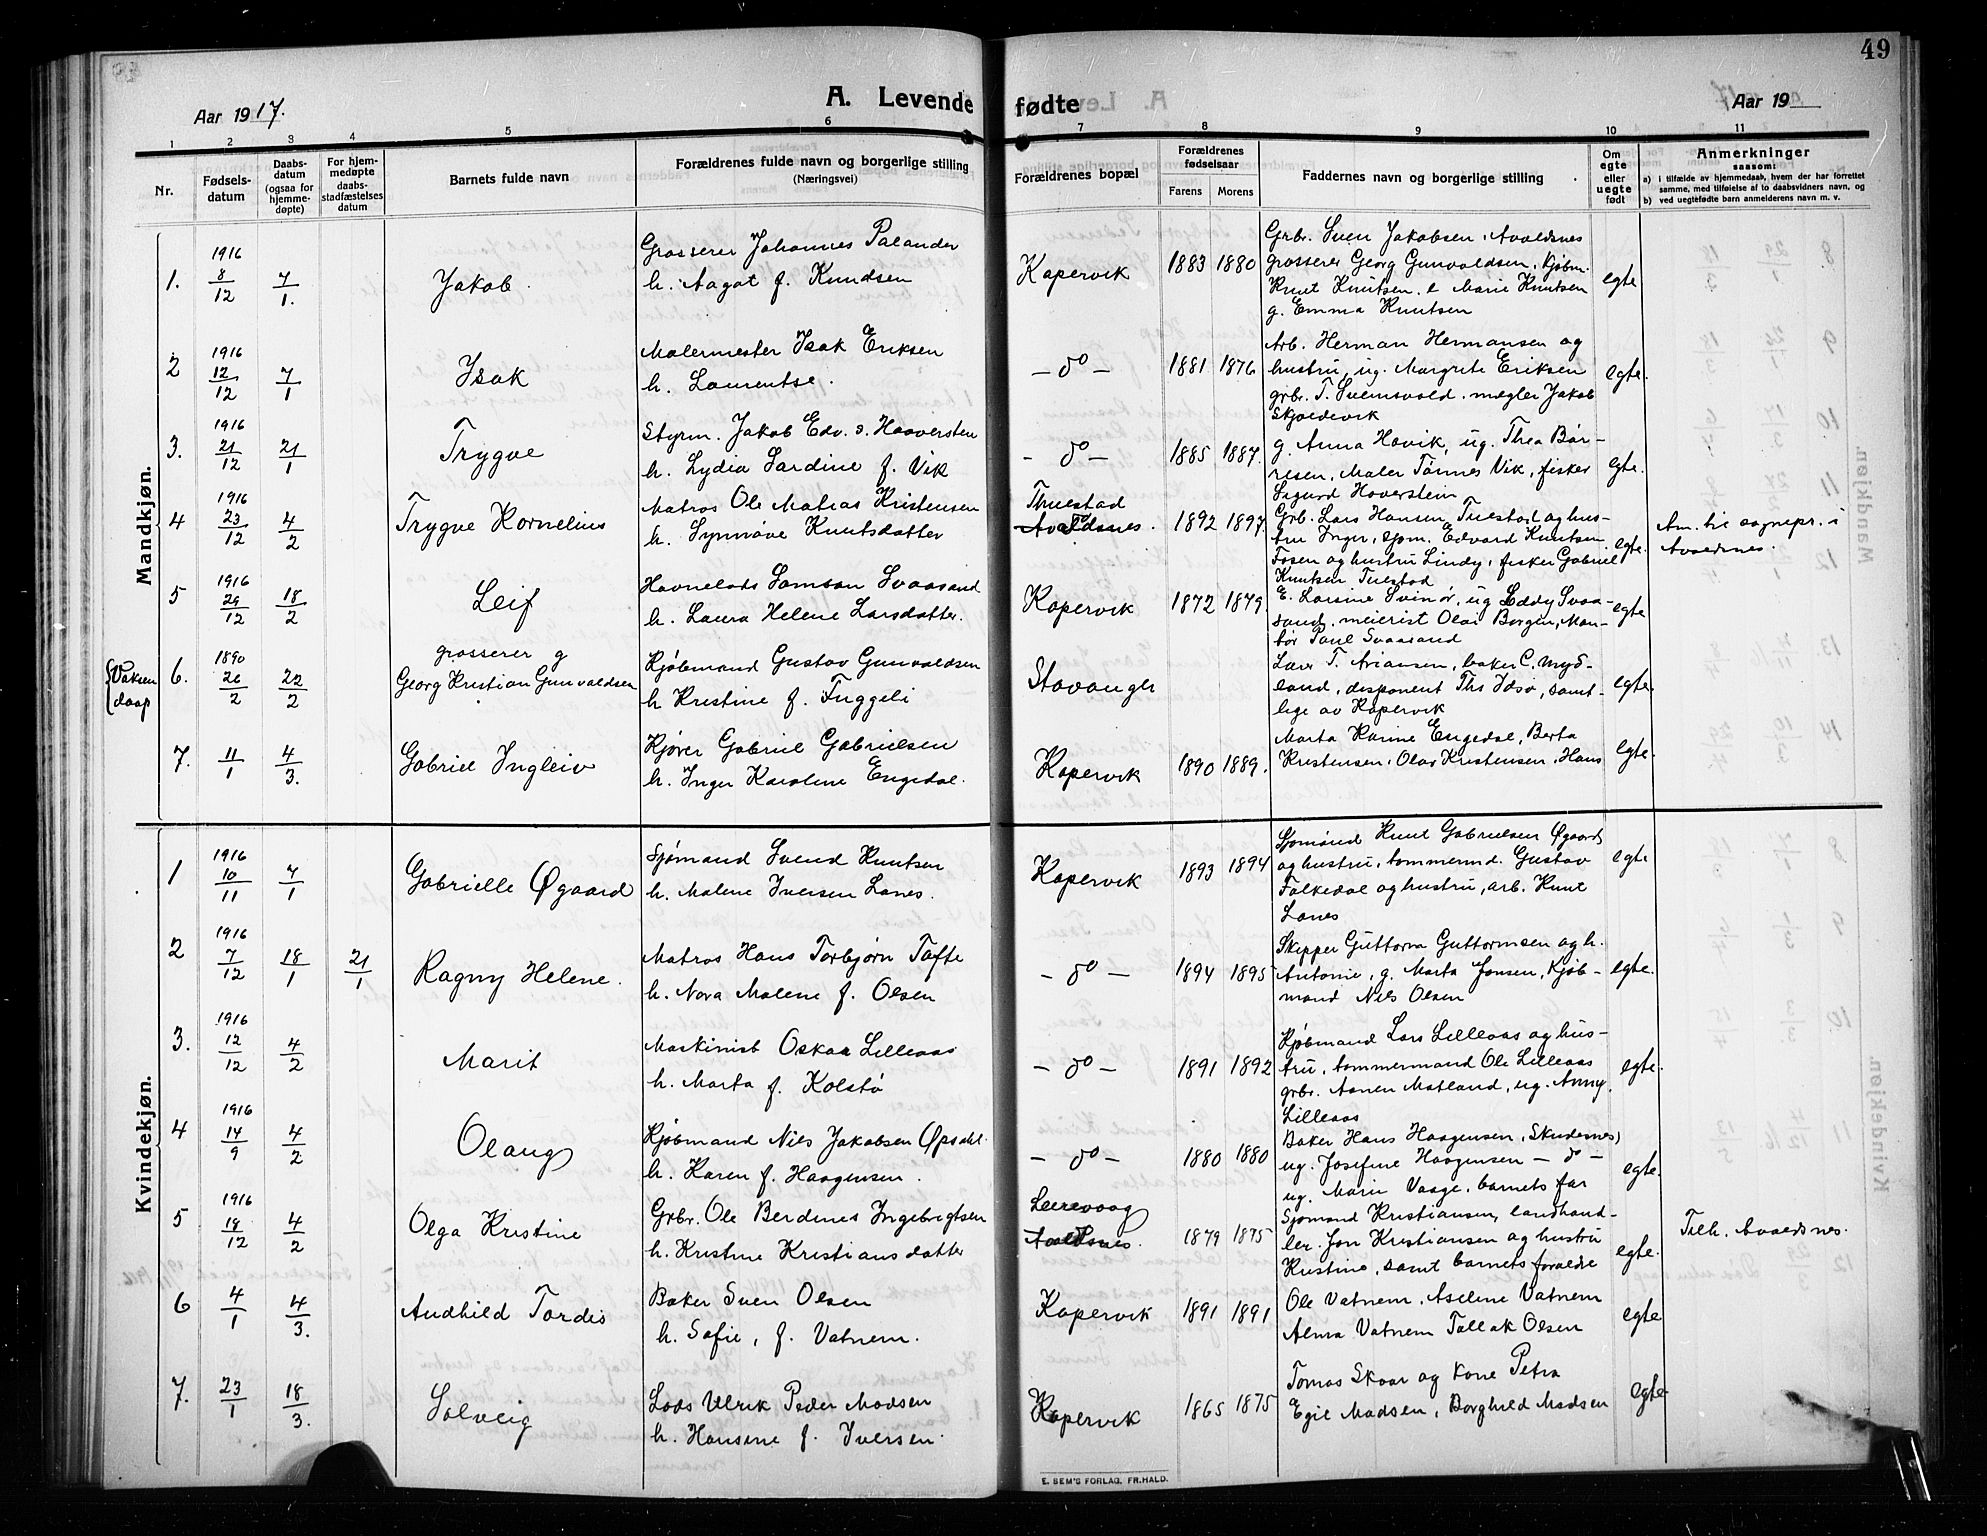 49
Aar 1917.
A. Levende fødte
Aar 19
1 2 3 4 5 6 7 8 9 10 11
Nr.
Fødsels-
datum
Daabs-
datum
(ogsaa for
hjemme-
døpte)
For hjem-
medøpte
daabs-
stadfæstelses
datum
Barnets fulde navn
Forældrenes fulde navn og borgerlige stilling
(Næringsvei)
Forældrenes bopæl
Forældrenes
fødselsaar
Farens Morens
Faddernes navn og borgerlige stilling
Om
egte
eller
uegte
født
Anmerkninger
saasom:
a) i tilfælde av hjemmedaab, hvem der har forrettet
samme, med tilføielse af to daabsvidners navn, og
b) ved uegtefødte barn anmelderens navn m. v.
Mandkjøn.
1. 1916 8/12 7/1. Jakob.
Grosserer Johannes Palander
h. Aagot f. Knudsen
Kopervik 1883 1880
Grbr. Sven Jakobsen, Avaldsnes
grosserer Georg Gunvaldsen, kjøbm.
Knut Knutsen, e Marie Knutsen
g. Emma Knutsen
egte
2 1916 12/12 7/1 Isak
Malermester Isak Eriksen
h. Laurentse.
- do - 1881 1876
Arb. Herman Hermansen og
hustru, ug. Margrete Eriksen
grbr. T. Svensvold, megler Jakob
Skjoldevik
egte.
3. 1916 21/12 21/1 Trygve
Styrm. Jakob Edv. s. Haaversten
h. Lydia Sardine f. Vik
- do - 1885 1887.
g. Anna Hovik, ug. Thea Bør-
resen, Maler Tønnes Vik, fisker
Sigurd Hoverstein
egte.
4 1916 23/12 4/2 Trygve Kornelius
Matros Ole Matias Kristensen
h. Synnøve Knutsdatter
Thuestad
Avaldsnes. 1892 1897
Grb. Lars Hansen Tuestad og hus-
tru Inger, sjøm. Edvard Knutsen
Fosen og hustru Lindy, fisker Gabriel
Knutsen Tuestad
egte.
Am. til sognepr. i
Avaldsnes.
5 1916 29/12 18/2 Leif
Havnelods Samson Svaasand
h. Laura Helene Larsdatter.
Kopervik 1872 1879.
E. Larsine Svinør, ug Eddy Svaa-
sand, meierist Olai Borgen, Mon-
tør Paul Svaasand
egte
{Voksen
daap
6. 1890 26/2 22/2
grosserer g
Georg Kristian Gunvaldsen
Kjøbmand Gustav Gunvaldsen
h Kristine f. Tuggeli
Stavanger
Lærer T. Ariansen, baker C. Myd-
land, disponent Ths Idsø, samt-
lige av Kopervik
egte.
7. 11/1 4/3. Gabriel Ingleiv
Kjører Gabriel Gabrielsen
h. Inger Karoline Engedal.
Kopervik 1890 1889.
Marta Karine Engedal, Berta
Kristensen, Olav Kristensen, Hans
egte.
Kvindekjøn.
1 1916 10/11 7/1 Gabrielle Øgaard
Sjømand Svend Knutsen
h. Malene Iversen Lones.
Kopervik 1893 1894
Sjømand Knut Gabrielsen Øgaard
og hustru, tømmermd. Gustav
Falkedal og hustru, arb. Knut
Lones
egte
2 1916 7/12 18/1 21/1 Ragny Helene.
Matros Hans Torbjørn Tofte
h. Nora Malene f. Olsen
- do - 1894 1895
Skipper Guttorm Guttormsen og h.
Antonie, g. Marta Jonsen, Kjøb-
mand Nils Olsen
egte.
3. 1916 12/12 4/2 Marit
Maskinist Oskar Lilleaas
h. Marta f. Kolstø
- do - 1891 1892
Kjøbmand Lars Lilleaas og hus-
tru, tømmermand Ole Lilleaas
grbr. Aanen Matland, ug. Anny
Lilleaas
egte.
4 1916 14/9 4/2 Olaug
Kjøbmand Nils Jakobsen Opsahl.
h. Karen f. Haagensen.
- do - 1880 1880
Baker Hans Haagensen, Skudenes,
ug. Josefine Haagensen - do -
ug. Marie Vaage, barnets far
egte.
5 1916 19/12 4/2 Olga Kristine
Grbr. Ole Berdines Ingebrigtsen
h. Kristine Kristiansdatter
Leirevaag
Avaldsnes. 1879 1875
Sjømand Kristiansen, landhand-
ler Jon Kristiansen og hustru
Kristine, samt barnets forældre
egte.
Tilh. Avaldsnes.
6 4/1 4/3. Audhild Tordis
Baker Sven Olsen
h. Sofie, f. Vatnem.
Kopervik 1891 1891
Ole Vatnem, Aselene Vatnem
Alma Vatnem Tallak Olsen
egte
7. 23/1 18/3. Solveig
Lods Ulrik Peder Madsen
h. Hansine f. Iversen.
Kopervik 1865 1875
Tomas Skaar og kone Petra
Egil Madsen, Borghild Madsen
egte
E. SEM'S FORLAG, FR.HALD.